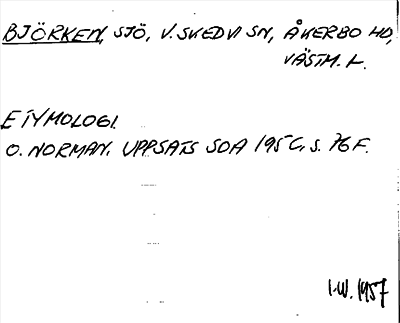 BJÖRKEN, SJÖ, V. SKEDVI SN, ÅKERBO HD,
VÄSTM. L.
ETYMOLOGI.
O. NORMAN. UPPSATS SOA 195C, S. 76 F.
I.W. 1957